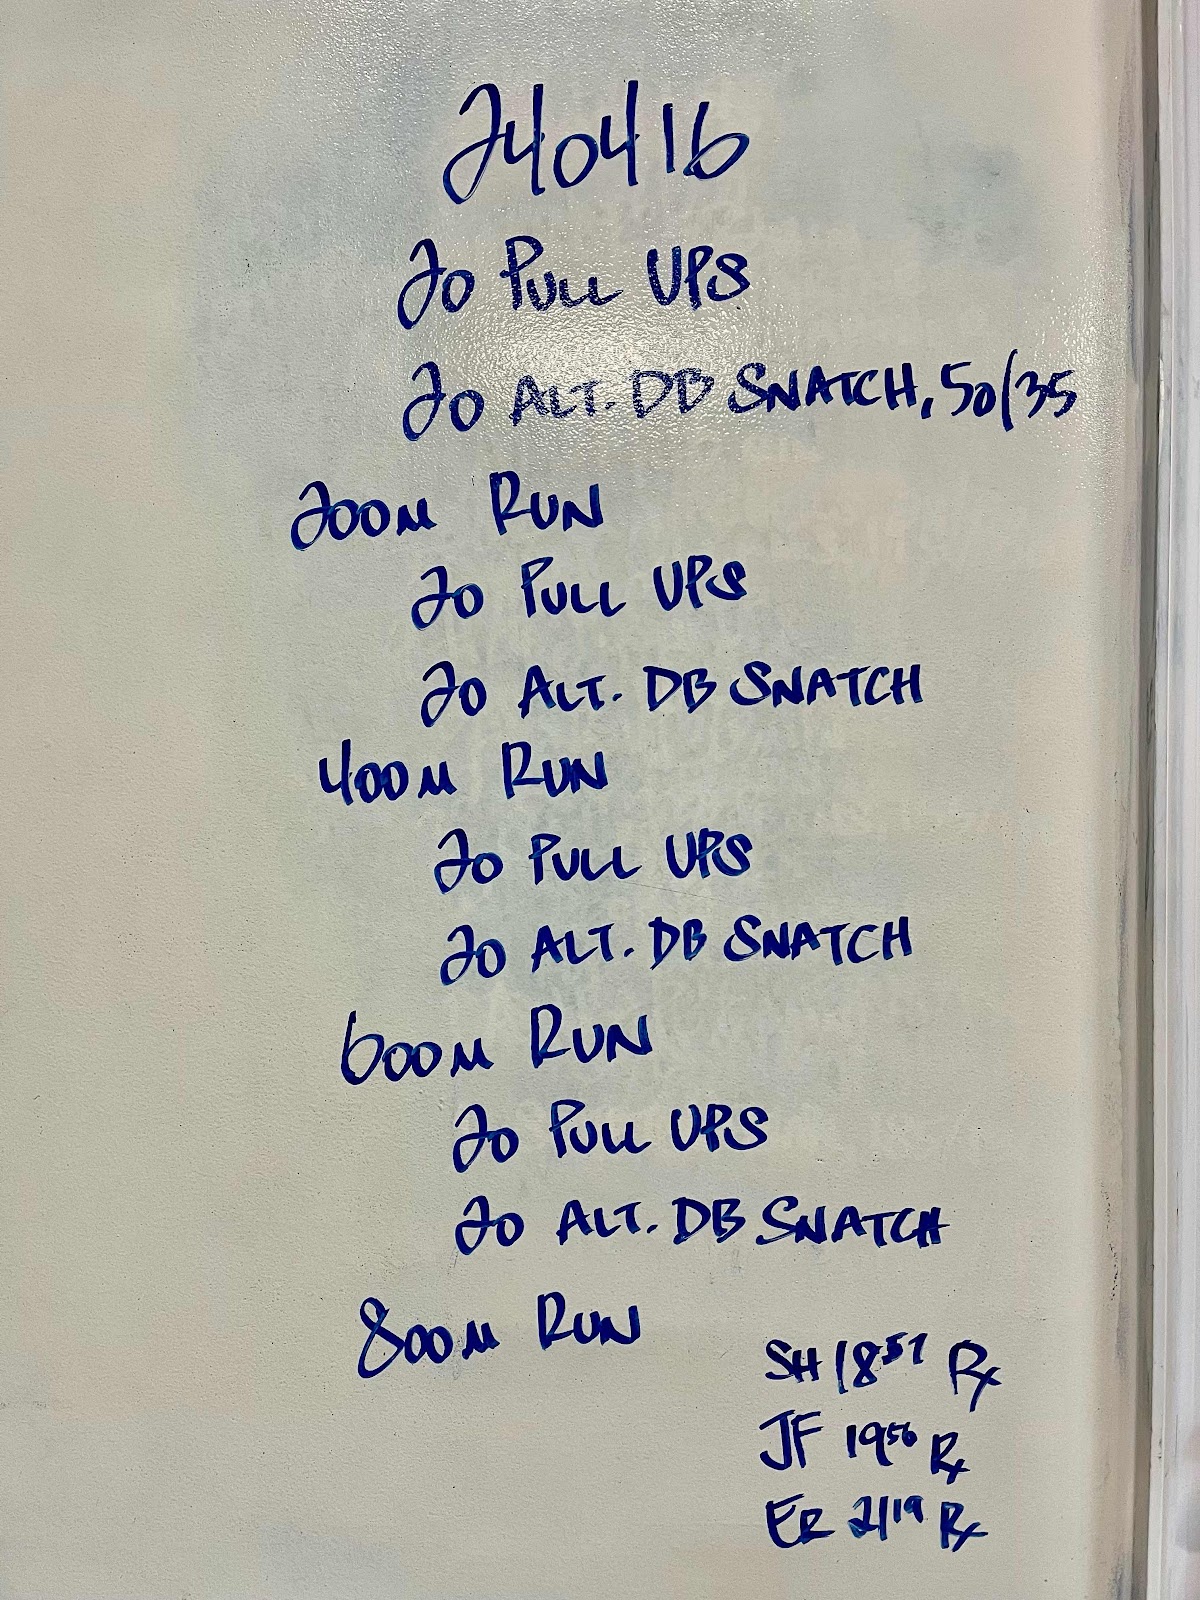 240416
20 PULL UPS
20 ALT. DB SNATCH, 50/35
200M RUN
20 PULL UPS
20 ALT. DB SNATCH
400M RUN
20 PULL UPS
20 ALT. DB SNATCH
600M RUN
20 PULL UPS
20 ALT. DB SNATCH
800M RUN
SH 18 57 Rx
JF 19 56 Rx
ER 21 19 Rx